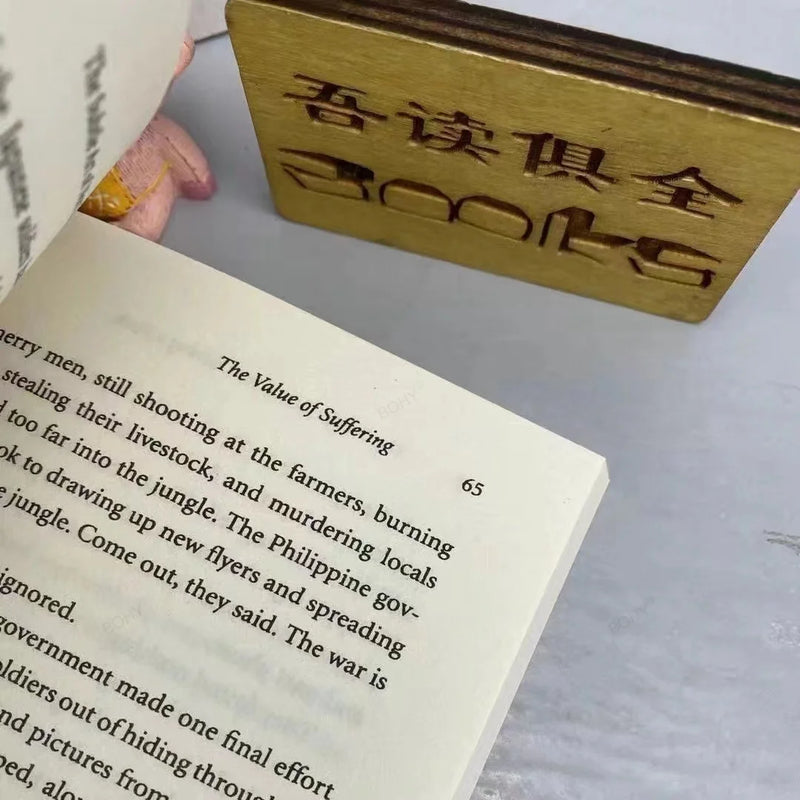 吾读俱全
Books
The Value of Suffering
65
merry men, still shooting at the farmers, burning
stealing their livestock, and murdering locals
too far into the jungle. The Philippine gov-
to drawing up new flyers and spreading
jungle. Come out, they said. The war is
ignored.
government made one final effort
soldiers out of hiding through
pictures from
BOHY
BOHY
BOHY